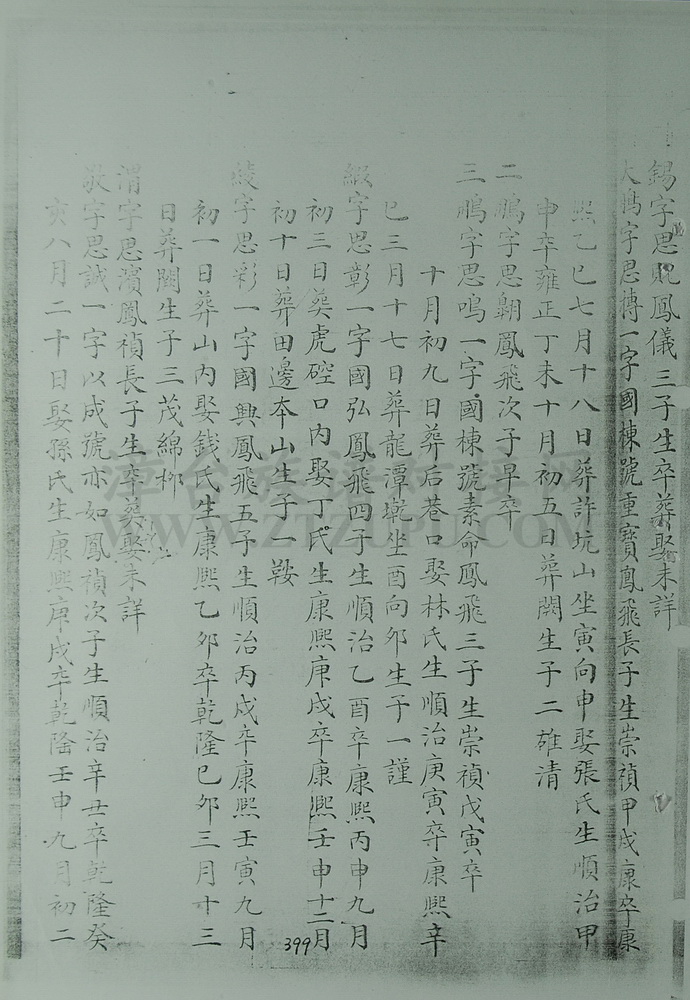 錫字思貺鳳儀三子生卒葬娶未詳
大鵰字思摶一字國棟號重寶鳳飛長子生崇禎甲戌康卒康
熙乙巳七月十八日葬許坑山坐寅向申娶張氏生順治甲
申卒雍正丁未十月初五日葬闕生子二雄清
二鵰字思翱鳳飛次子早卒
三鵰字思鳴一字國棟號素命鳳飛三子生崇禎戊寅卒
十月初九日葬后巷口娶林氏生順治庚寅卒康熙辛
巳三月十七日葬龍潭墘坐酉向卯生子一謹
緞字思彰一字國弘鳳飛四子生順治乙酉卒康熙丙申九月
初三日葵虎硿口內娶丁氏生康熙庚戌卒康熙壬申十二月
初十日葬田邊夲山生子一鞍
綾字思彩一字國興鳳飛五子生順治丙戍卒康熙壬寅九月
初一日葬山內娶錢氏生康熙乙夘卒乾隆巳夘三月十三
日葬闕生子三茂綿柳
渭字思濱鳳禎長子生卒葵娶未詳
敬字思誠一字以成號亦如鳳禎次子生順治辛丑卒乾隆癸
亥八月二十日娶孫氏生康熙庚戍卒乾隆壬申九月初二
399
WWW.ZTZUPU.COM